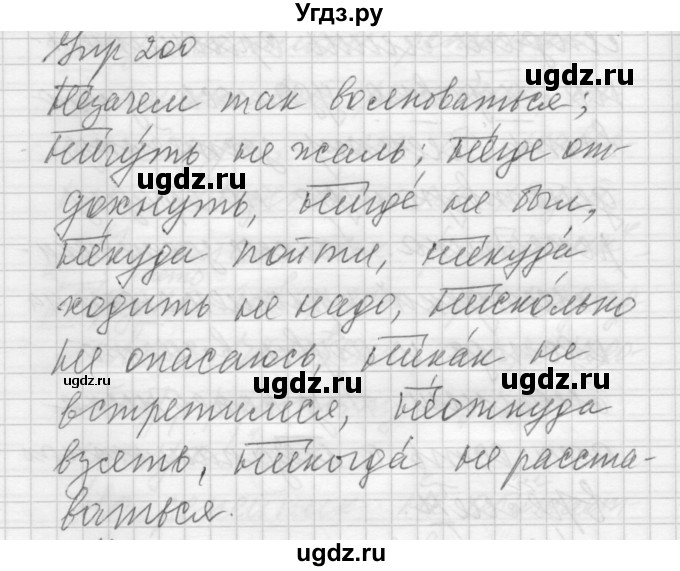 Угдз.ру
Упр 200
Незачем так волноваться;
ничу́ть не жаль; не́где от-
дохнуть, нигде́ не был,
не́куда пойти, никуда́
ходить не надо, ниско́лько
не опасаюсь, ника́к не
встретимся, не́откуда
взять, никогда́ не расста-
ваться.
ugdz.ru
ugdz.ru
ugdz.ru
ugdz.ru
ugdz.ru
ugdz.ru
ugdz.ru
ugdz.ru
ugdz.ru